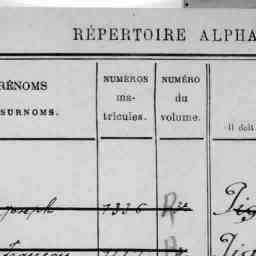 RÉPERTOIRE ALPHA
RÉNOMS
SURNOMS.
NUMÉROS
ma-
tricules.
NUMÉRO
du
volume.
Il doit
Joseph 1336
François